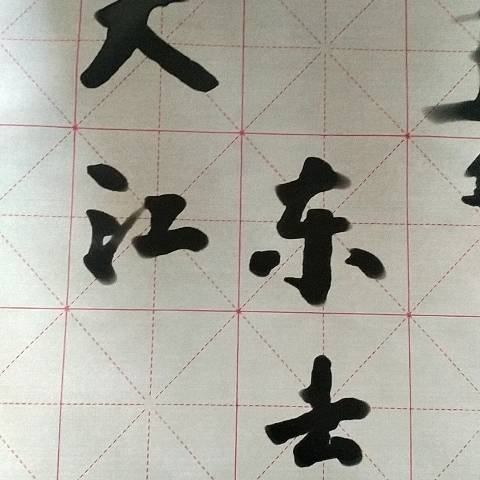 大江
东去